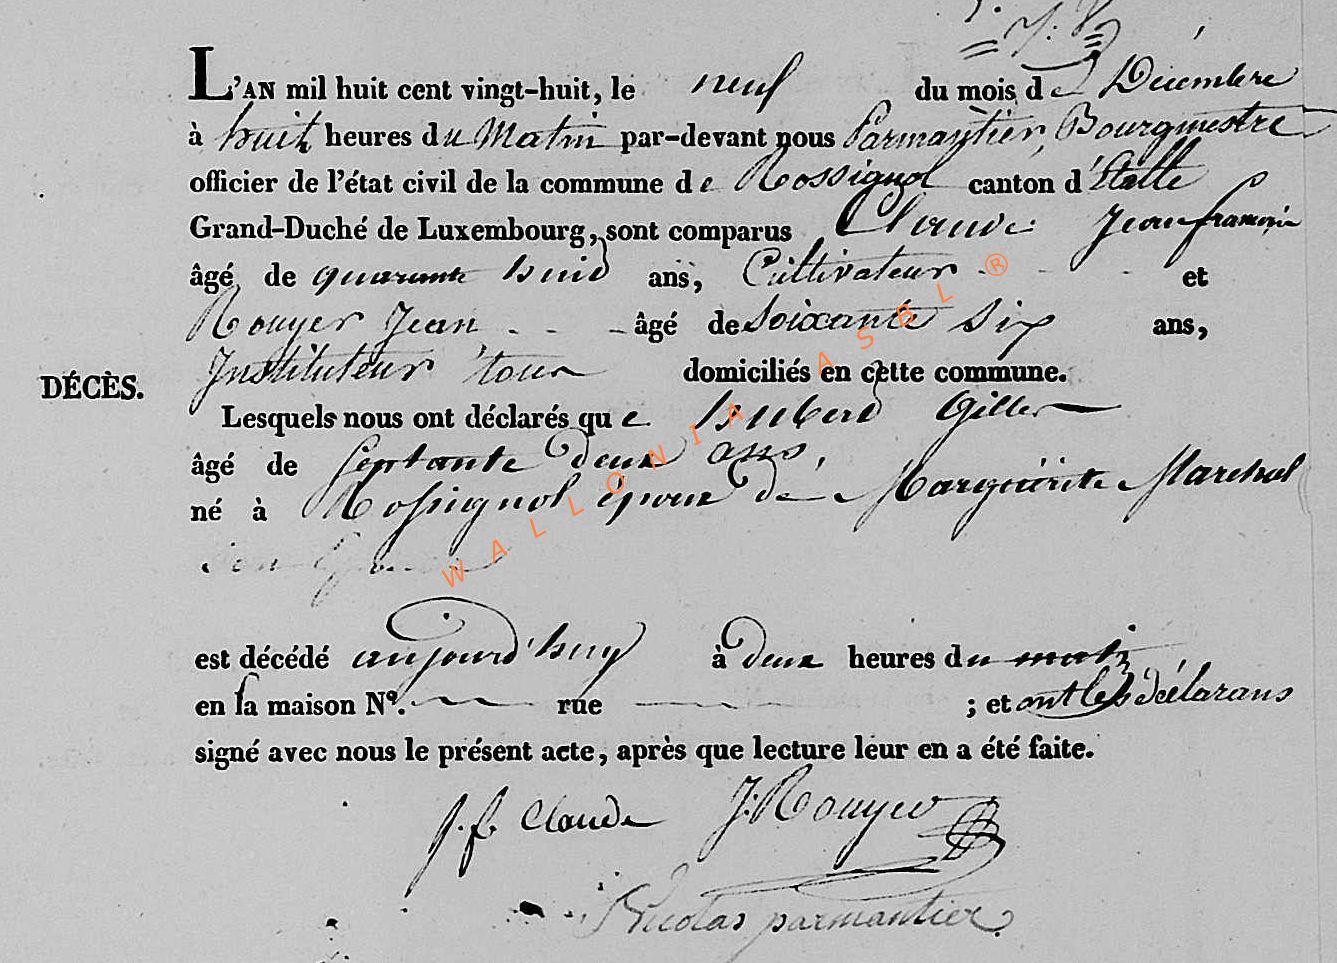 L'AN mil huit cent vingt-huit, le neuf du mois de Décembre
à huit heures du Matin par-devant nous Parmantier, Bourgmestre
officier de l'état civil de la commune de Rossignol canton d'Etalle
Grand-Duché de Luxembourg, sont comparus Claude Jean francois
âgé de quarante huid ans, Cultivateur et
Rouyer Jean âgé de Soixante Six ans,
Instituteur tous domiciliés en cette commune.
DÉCÈS.
Lesquels nous ont déclarés que huberd Gilles
âgé de Septante deux ans,
né à Rossignol époux de Margueritte Marchal
est décédé aujourd'huy à deux heures du matin
en la maison N°. rue ; et ont les déclarans
signé avec nous le présent acte, après que lecture leur en a été faite.
J. f. Claude J: Rouyer
Nicolas parmantier
WALLONIA ASBL ®